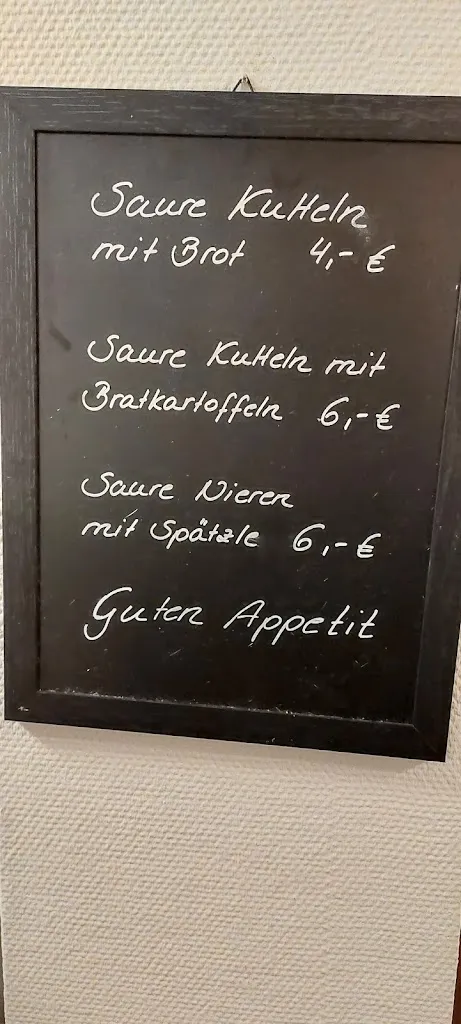 Saure Kutteln
mit Brot 4,- €
Saure Kutteln mit
Bratkartoffeln 6,- €
Saure Nieren
mit Spätzle 6,- €
Guten Appetit